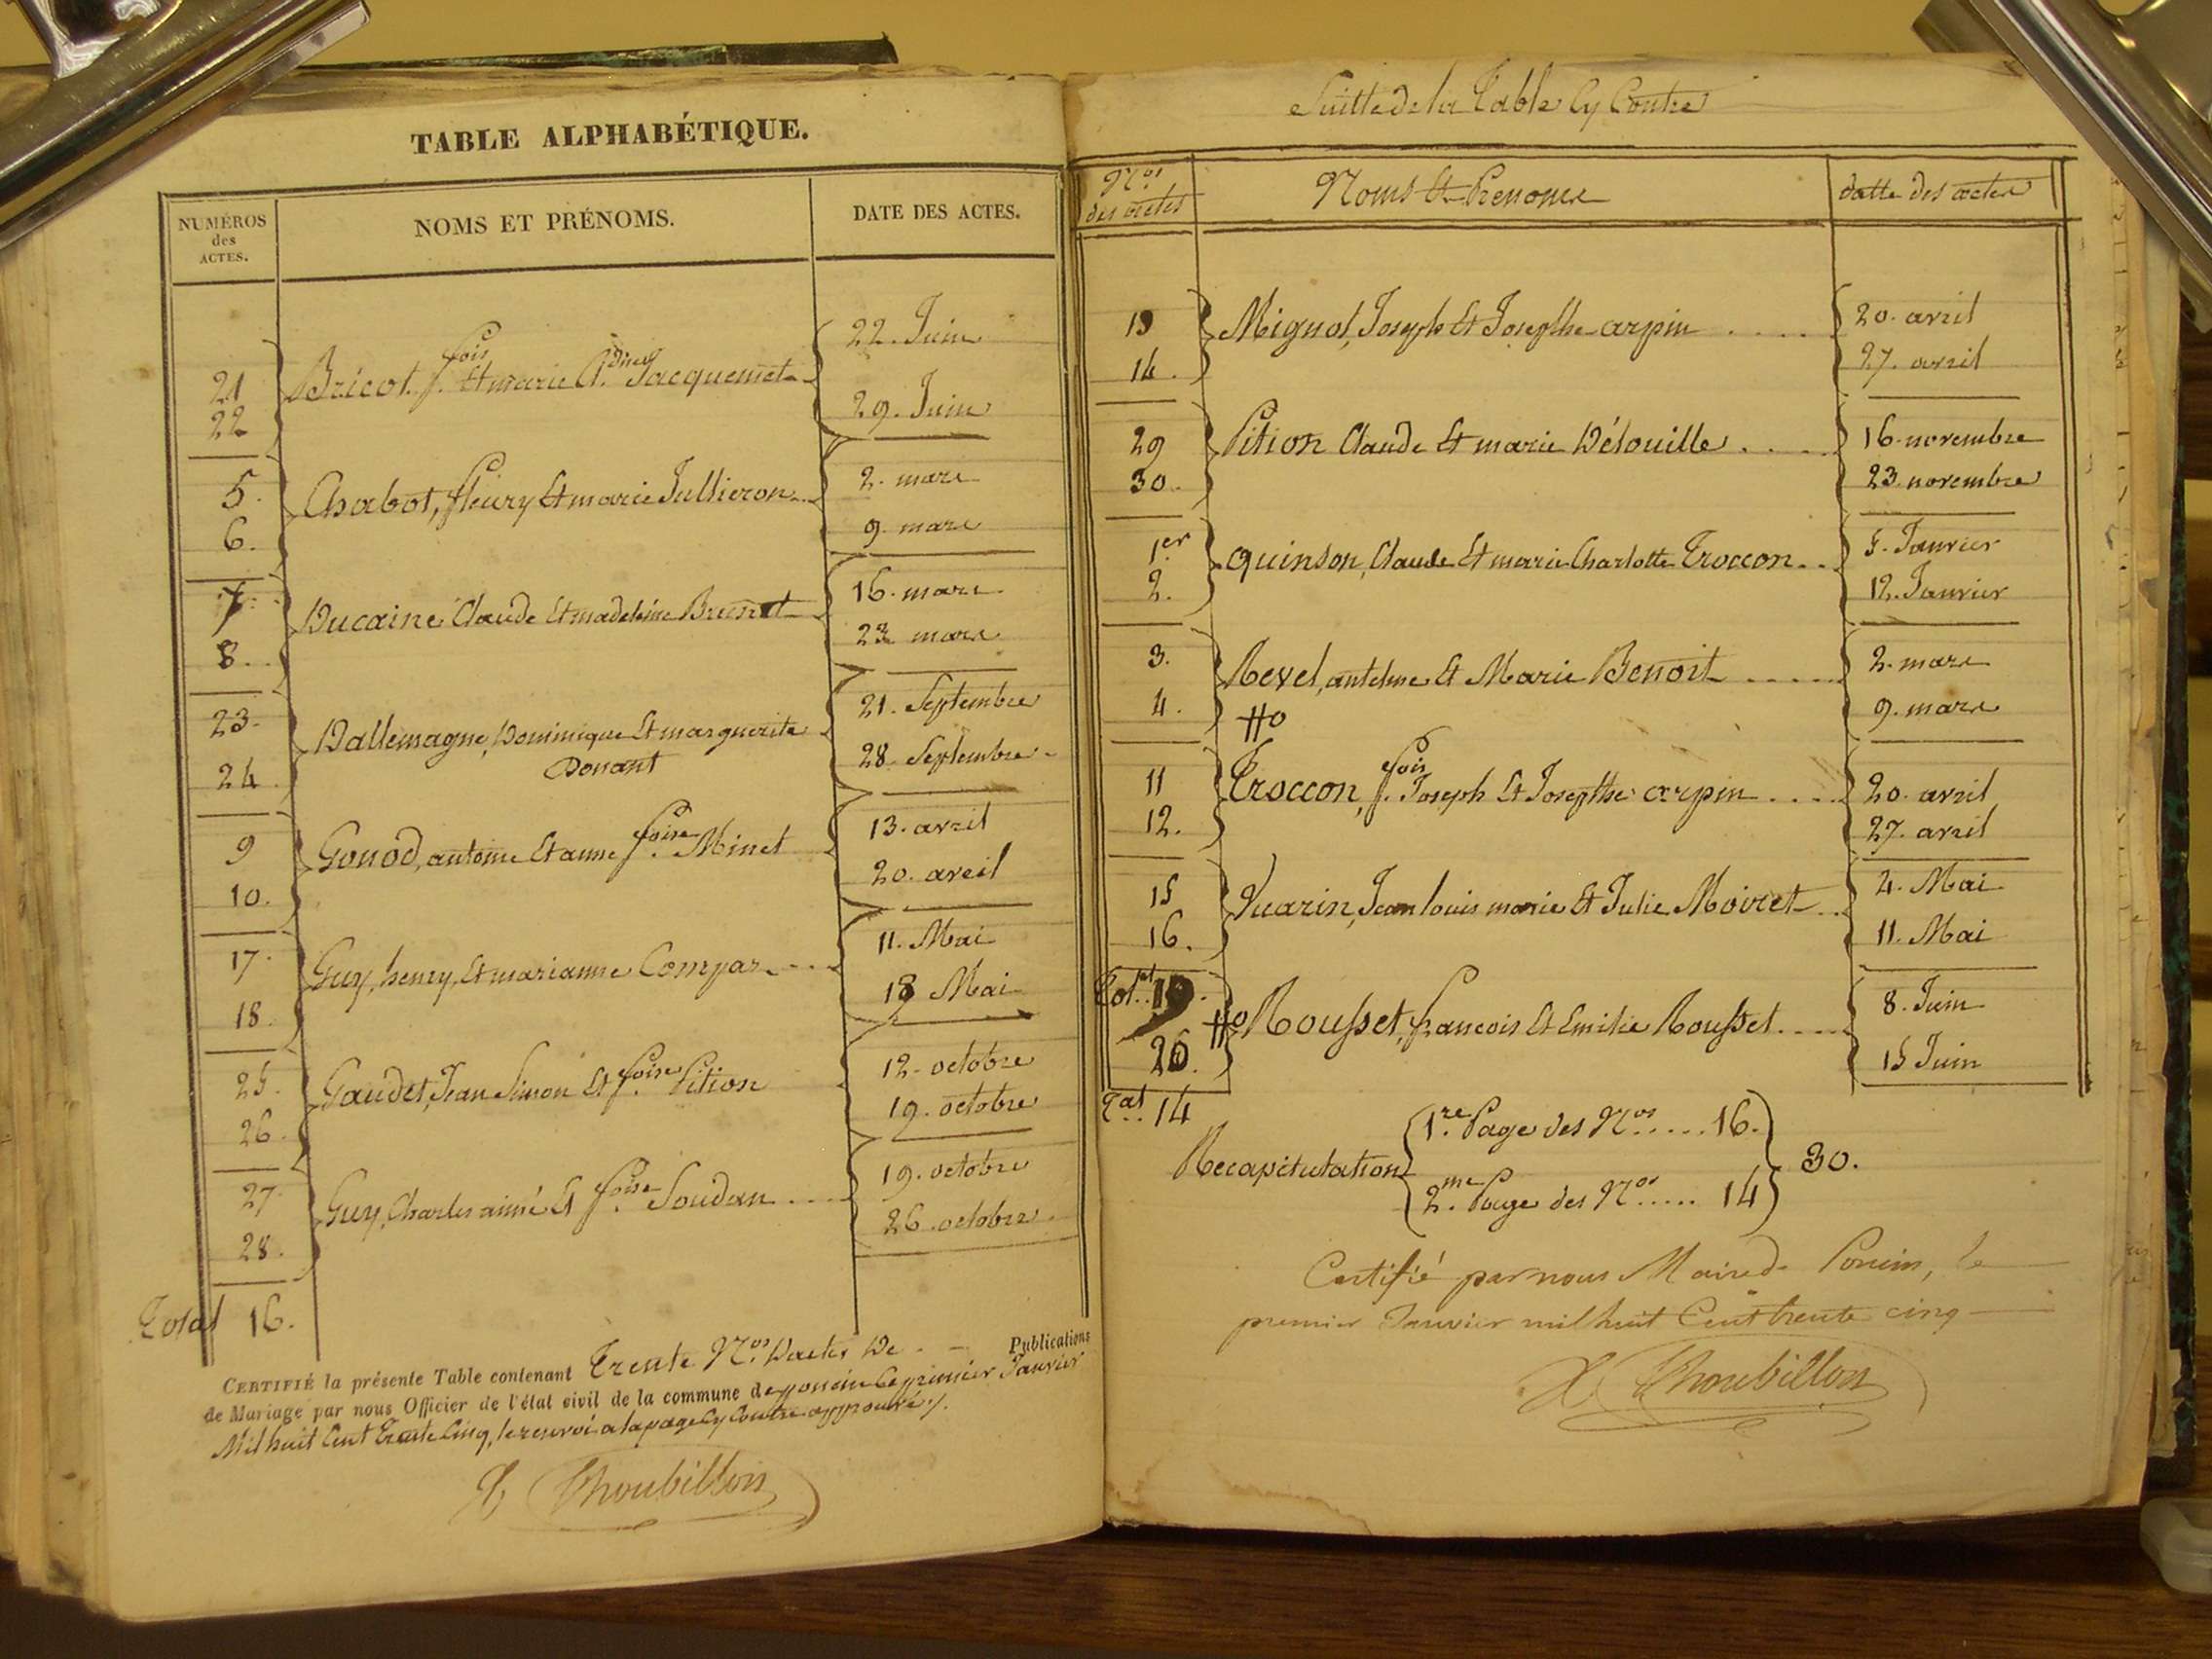 TABLE ALPHABÉTIQUE.
NUMÉROS des ACTES.
NOMS ET PRÉNOMS.
DATE DES ACTES.
21 Bricot f.çois Et marie C.dine Jacquemet 22. Juin
22 29. Juin
5. Chabot, fleury Et marie Jullieron 2. mars
6. 9. mars
7. Ducaine Claude Et madeleine Brunet 16. mars
8. 23 mars
23. Dallemagne, Dominique Et marguerite 21. Septembre
Donant
24. 28. Septembre
9 Gonod, antoine Et anne f.çoise Minet 13. avril
10. 20. avril
17. Guy, henry, Et marianne Compar 11. Mai
18. 18 Mai
25. Gaudet, Jean Simon Et f.çoise Pition 12. octobre
26. 19. octobre
27. Guy, Charles aimé Et f.çoise Soudan 19. octobre
28. 26. octobre
Total 16.
CERTIFIÉ la présente Table contenant Trente N.os Dactes De Publications
de Mariage par nous Officier de l'état civil de la commune de poncin le premier Janvier
Mil huit Cent Trente Cinq, le renvoi a la page Cy Contre approuvé ./.
Thoubillon
Suitte de la Table Cy Contre
N.os des actes
Noms Et Prenoms
datte des actes
13 Mignot, Joseph Et Josepthe arpin 20. avril
14. 27. avril
29 Pition Claude Et marie Délouille 16. novembre
30. 23. novembre
1.er Quinson, Claude Et marie Charlotte Troccon 5. Janvier
2. 12. Janvier
3. Revel, antelme Et Marie Benoit 2. mars
4. 9. mars
11 Troccon, f.çois Joseph Et Josepthe arpin 20. avril
12. 27. avril
15 Vuarin, Jean louis marie Et Julie Moiret 4. Mai
16. 11. Mai
19. Rousset, francois Et Emilie Rousset 8. Juin
20. 15 Juin
Tat 14
1.re Page des N.os 16.
Recapitulation 30.
2.me Page des N.os 14
Certifié par nous Maire de Poncin, le
premier Janvier mil huit Cent trente cinq
Thoubillon